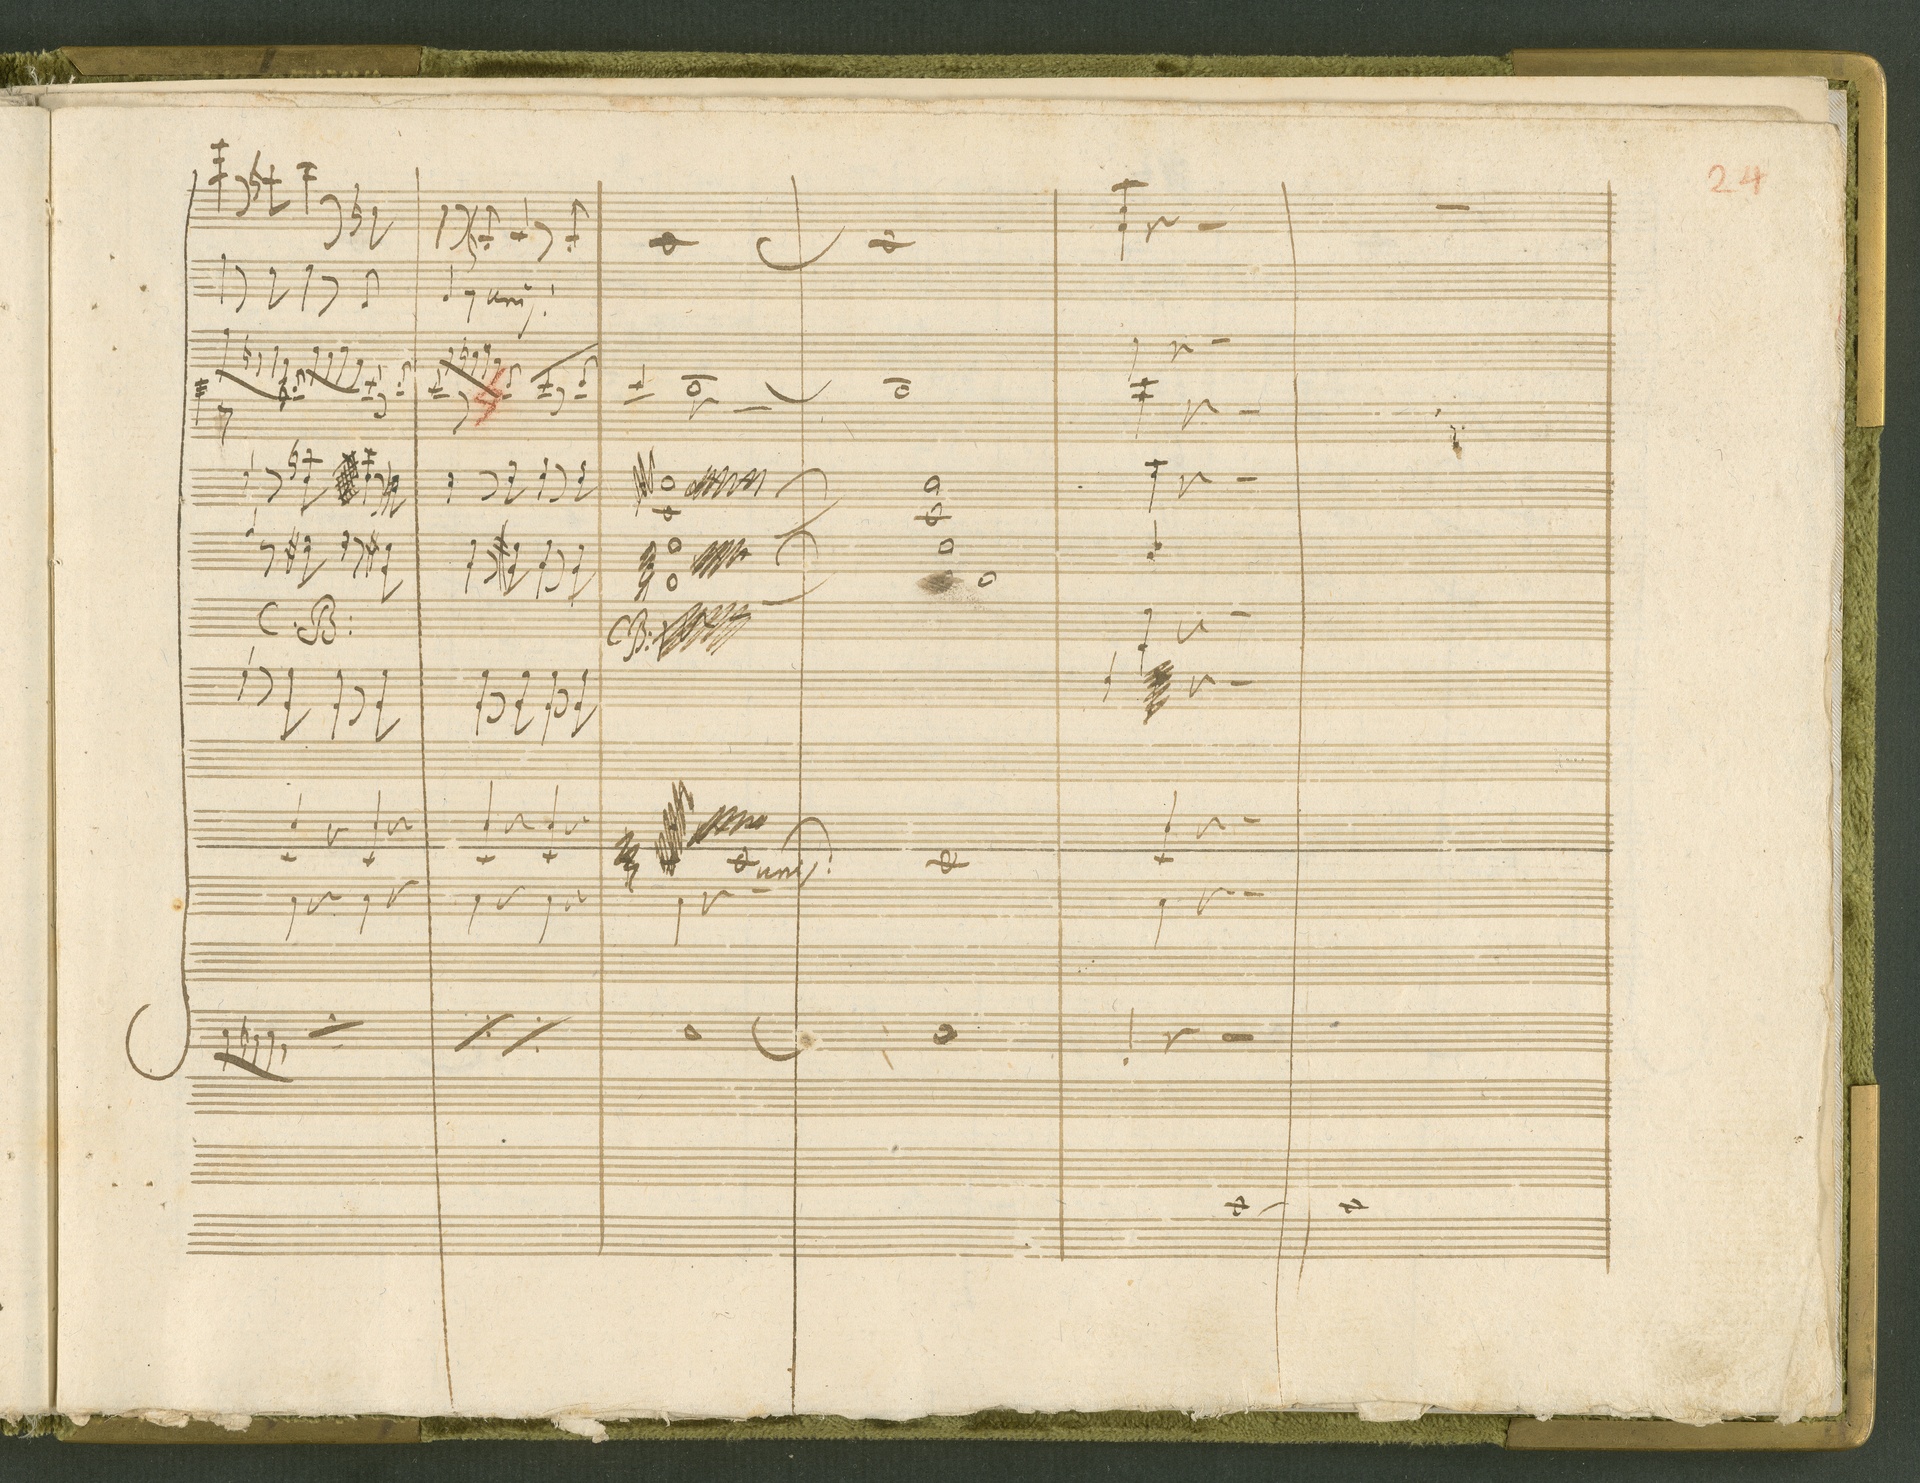 24
unis:
C:B:
CB:
unis: